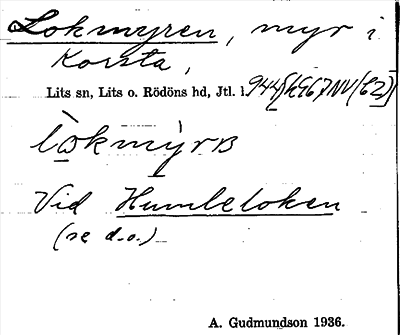 Lokmyren, myr i
Korsta,
Lits sn, Lits o. Rödöns hd, Jtl. l.
Vid Humleloken
(se d.o.)
A. Gudmundson 1936.